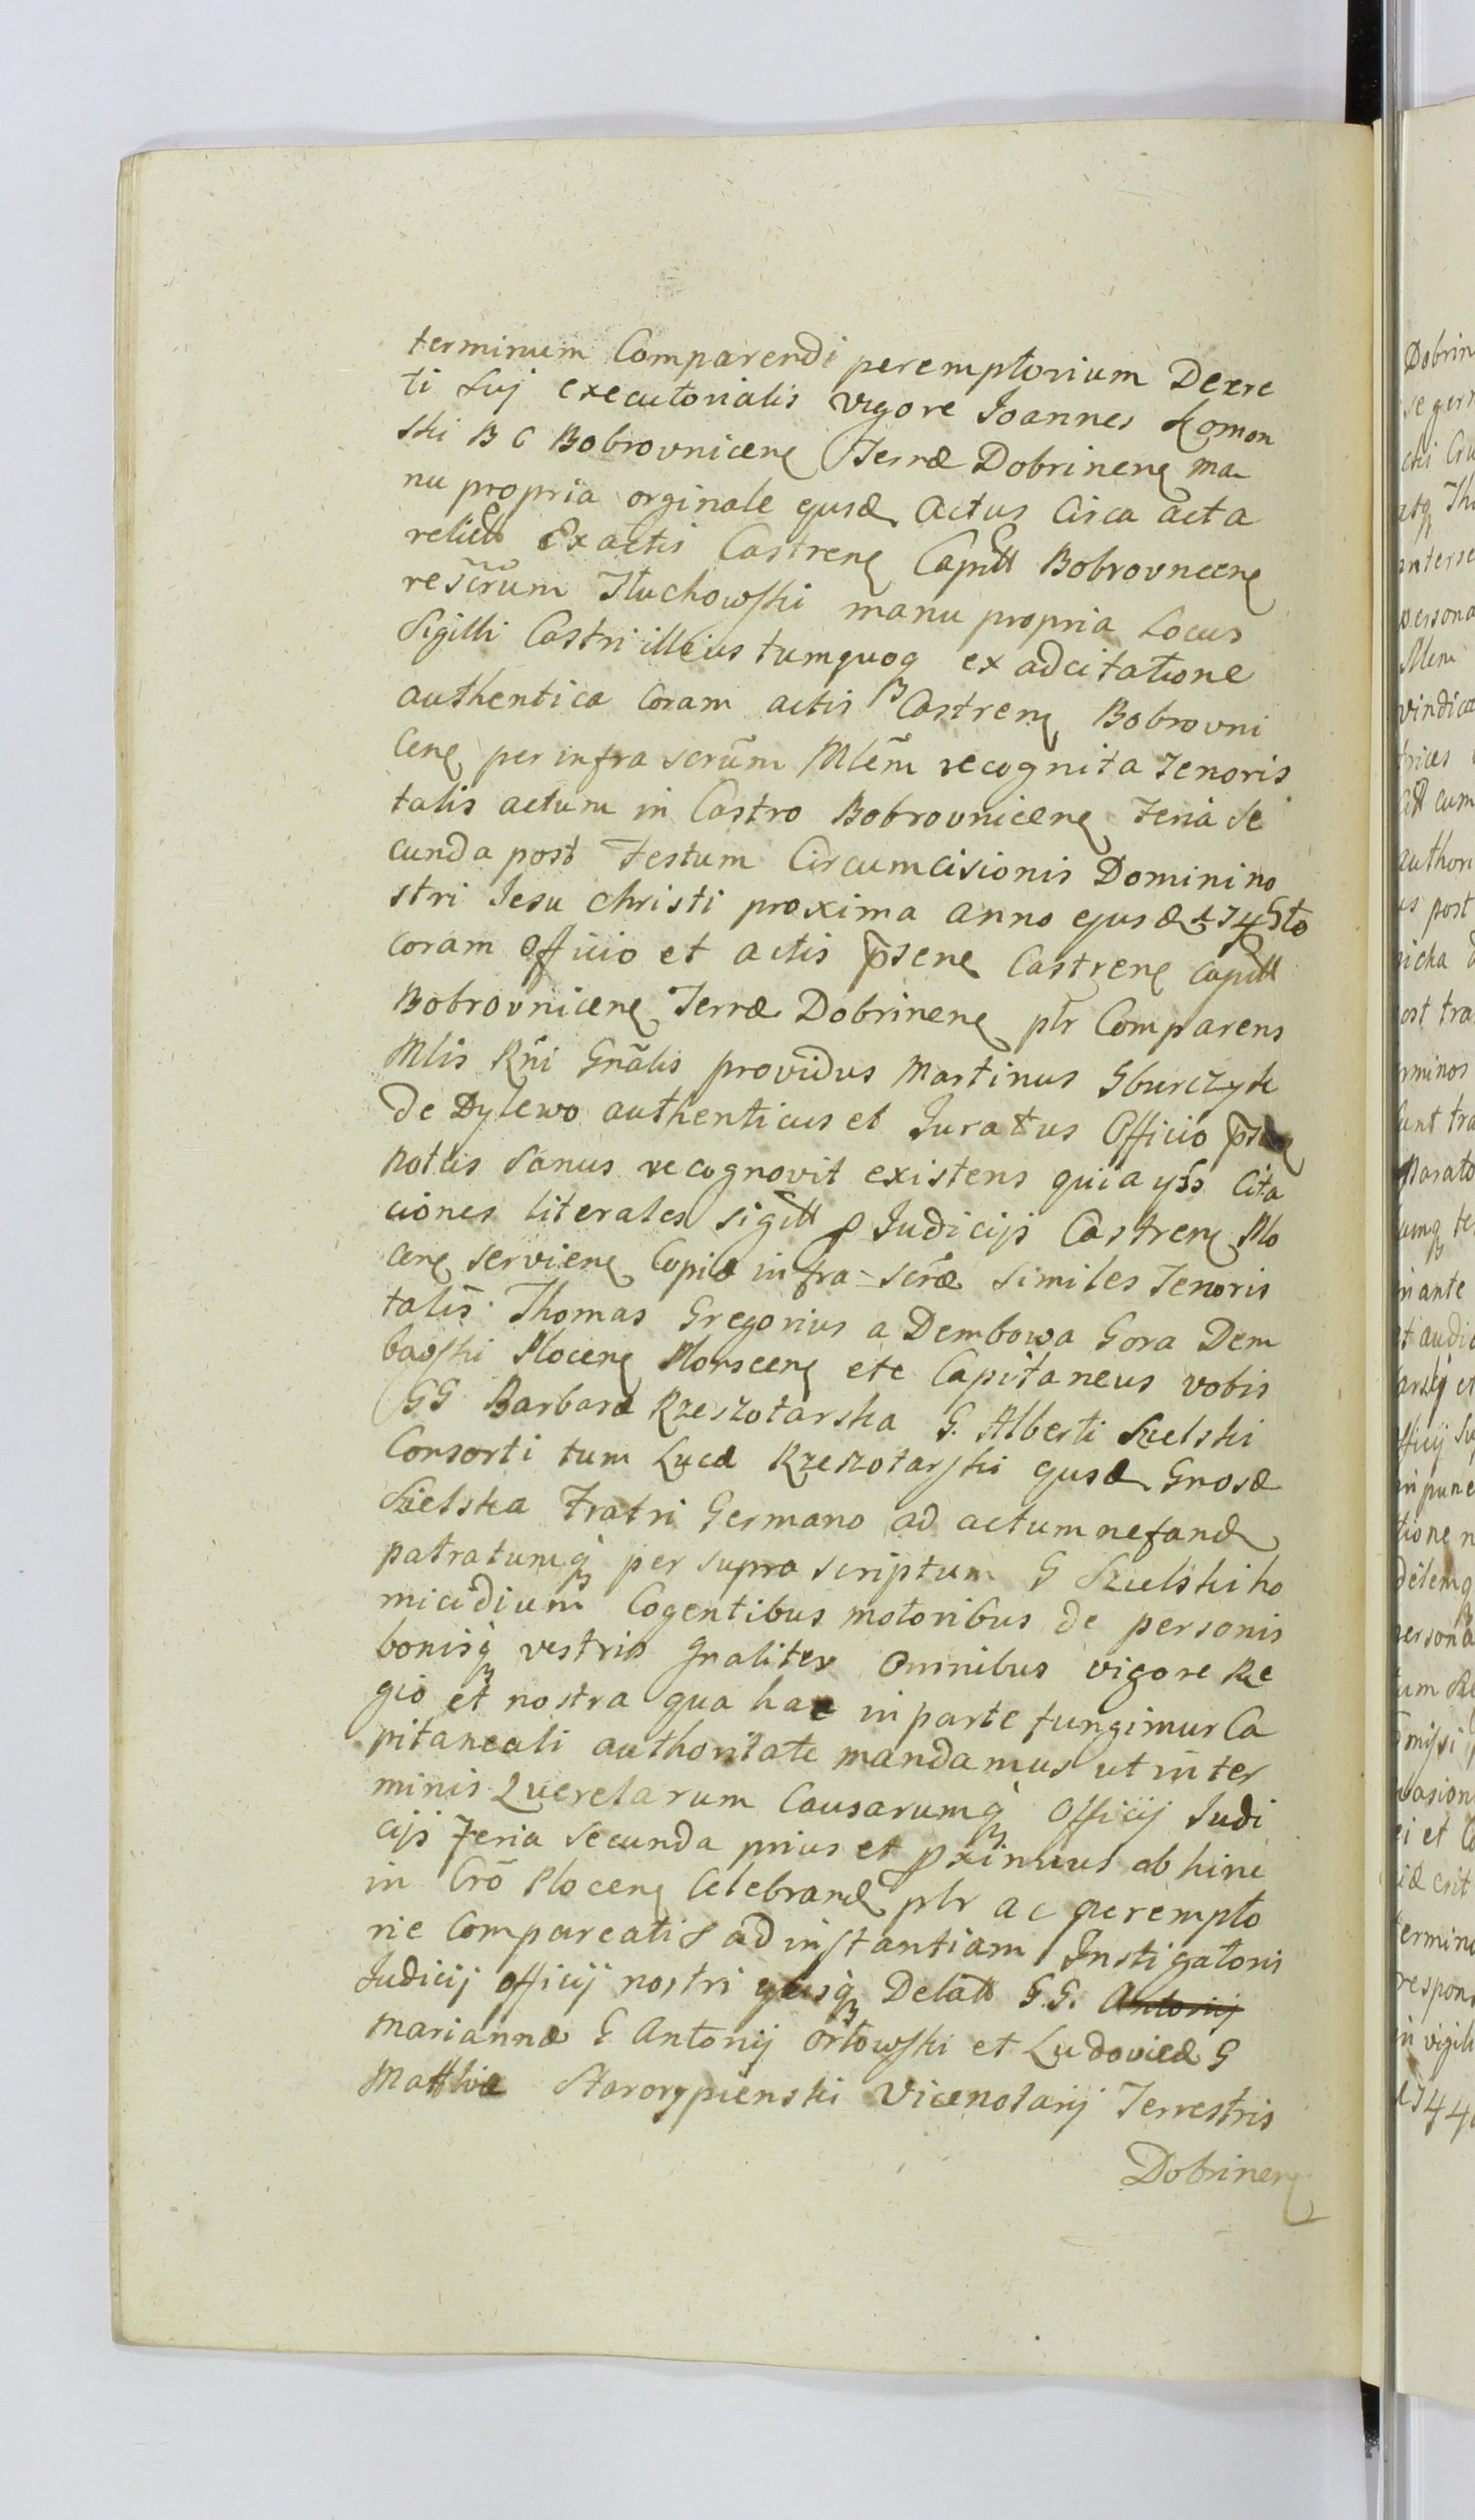 terminum Comparendi peremptorium Decre
ti Suj executorialis vigore Joannes Komon
ski B C Bobrovnicenẽ Terræ Dobrinenẽ ma
nu propria orginale ejusd actus Circa acta
relict Exactis Castrenẽ Capitt Bobrovncenẽ
rescr̃um Tłuchowski manu propria Locus
Sigilli Castri illius tumquoq ex adcitatione
authentica Coram actis Castrenẽ Bobrovni
cenẽ per infra scrũm Mlẽm recognita Tenoris
talis actum in Castro Bobrovnicenẽ Feria Se
cunda post Festum Circumcisionis Domini no
stri Jesu Christi proxima anno ejusd 1745to
Coram Officio et actis p̃senẽ Castrenẽ Capitt
Bobrovnicenẽ Terræ Dobrinenẽ plr Comparens
Mlis Rñi Gnãlis providus Martinus Gburczyk
de Dylewo authenticus et Juratus Officio p̃senẽ
notus Sanus recognovit existens quia yss Cita
ciones literales sigitt p Judicijs Castrenẽ Plo
cenẽ servienẽ Copiæ infra-scr̃æ Similes Tenoris
talis Thomas Gregorius a Dembowa Gora Dem
bowski Plocenẽ Plonscenẽ etc Capitaneus vobis
GG Barbaræ Rzeszotarska G. Alberti Szelski
Consorti tum Lucæ Rzeszotarski ejusd Gnosæ
Szelska Fratri Germano ad actum nefand
patratumq per supra scriptum G Szulski ho
micidium Cogentibus motoribus de personis
bonisq vestris gnaliter Omnibus vigore Re
gio et nostra qua hac in parte fungimur Ca
pitaneali authoritate mandamus ut in ter
minis Querelarum Causarumq Officij Judi
cijs Feria Secunda prius et pximius ab hinc
in Crõ Plocenẽ Celebrand plr ac perempto
rie Compareatis ad instantiam Instigatoris
Judicij officij nostri ejusq Delatt G.G. Antonij
Mariannæ G Antonij Orłowski et Ludovicæ G
Matthiæ Starorypienski Vicenotarij Terrestris
Dobrinenẽ